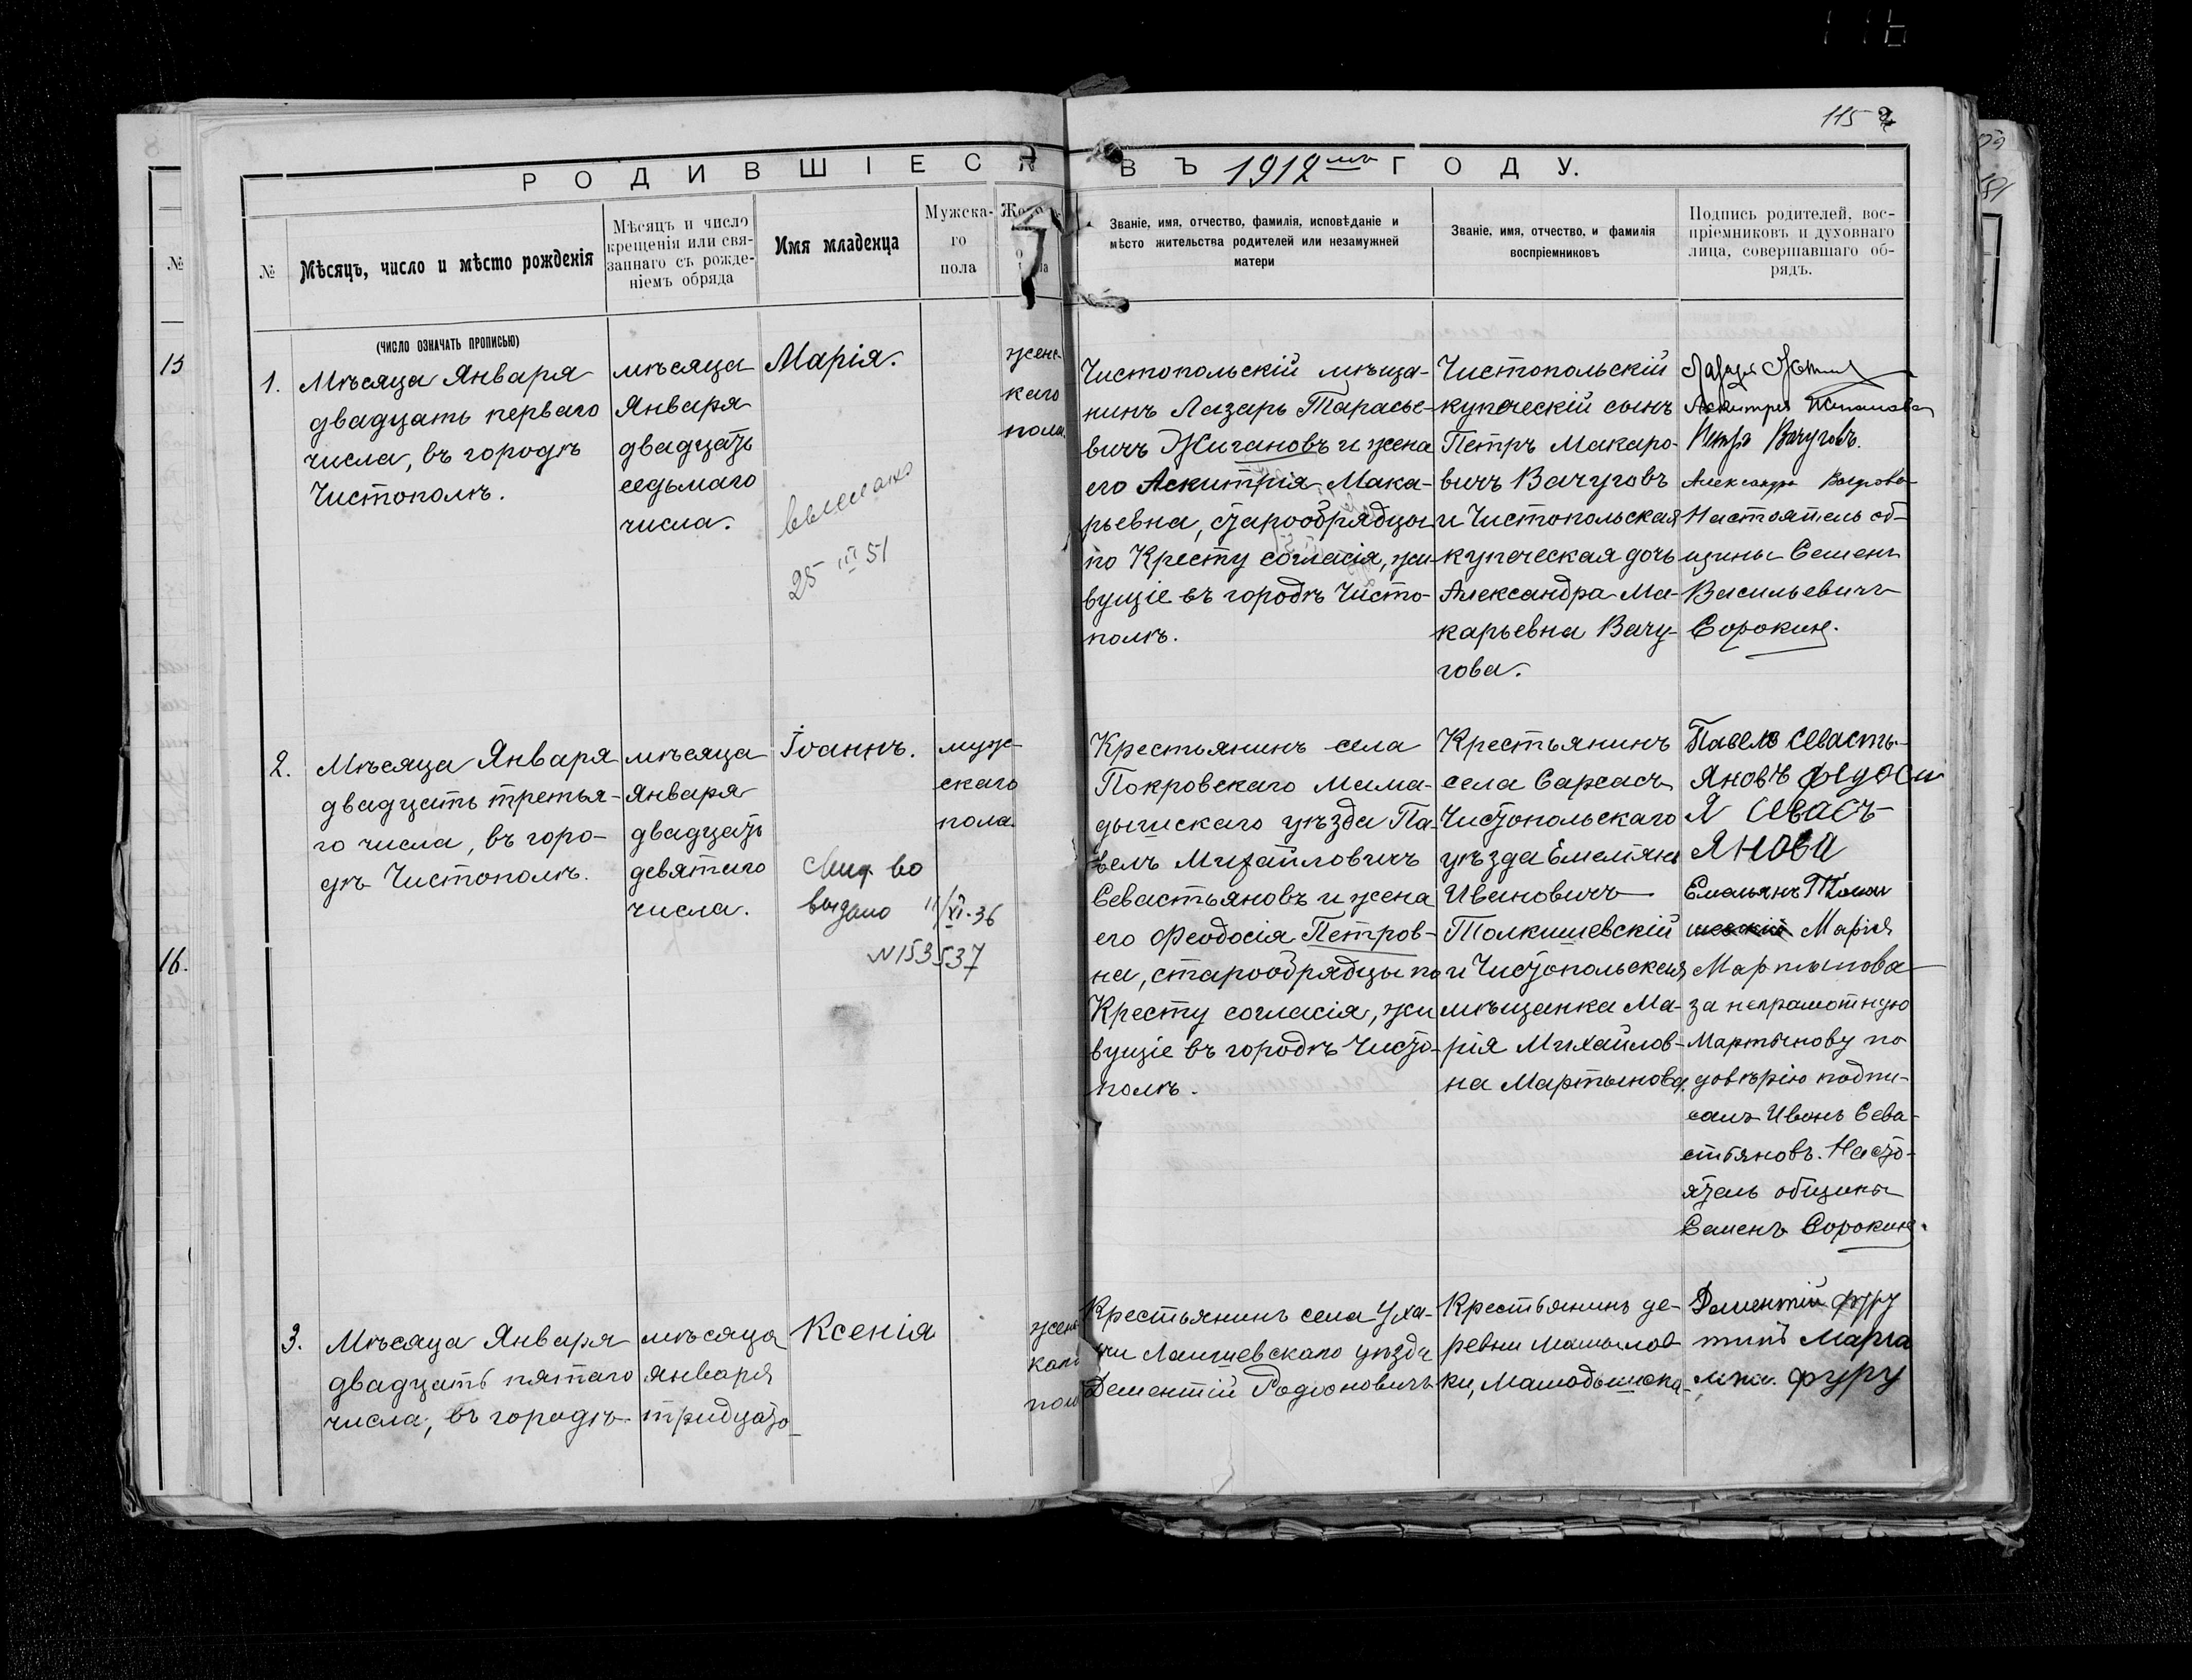 115
РОДИВШІЕСЯ ВЪ 1912мъ ГОДУ.
№
№
Мѣсяцъ, число и мѣсто рожденія
Мѣсяцъ и число
крещенія или свя-
заннаго съ рожде-
ніемъ обряда
Имя младенца
Мужска-
го
пола
Званіе, имя, отчество, фамилія, исповѣданіе и
мѣсто жительства родителей или незамужней
матери
Званіе, имя, отчество, и фамилія
воспріемниковъ
Подпись родителей, вос-
пріемниковъ и духовнаго
лица, совершавшаго об-
рядъ.
(ЧИСЛО ОЗНАЧАТЬ ПРОПИСЬЮ)
15
1.
Мѣсяца Января
двадцать перваго
числа, въ городѣ
Чистополѣ.
мѣсяца
Января
двадцать
седьмаго
числа.
Марія.
выслано
25 III 51
женс-
каго
пола.
Чистопольскій мѣща-
нинъ Лазарь Тарасье-
вичъ Жигановъ и жена
его Аскитрія Мака-
рьевна, старообрядцы
по Кресту согласія, жи-
вущіе въ городѣ Чисто-
полѣ.
Чистопольскій
купеческій сынъ
Петръ Макаро-
вичъ Вачуговъ
и Чистопольская
купеческая дочь
Александра Ма-
карьевна Вачу-
гова.
Петръ Вачуговъ.
Александра
Настоятель об-
щины Семенъ
Васильевичъ
Сорокин.
2.
Мѣсяца Января
двадцать третья-
го числа, въ горо-
дѣ Чистополѣ.
мѣсяца
Января
двадцать
девятаго
числа.
Іоаннъ.
во
выдано 11/XI-36
N153537
муж-
скаго
пола.
Крестьянинъ села
Покровскаго Мама-
дышскаго уѣзда Па-
велъ Михайловичъ
Севастьяновъ и жена
его Феодосія Петров-
на, старообрядцы по
Кресту согласія, жи
вущіе въ городѣ Чисто-
полѣ.
Крестьянинъ
села Сарсасъ
Чистопольскаго
уѣзда Емельянъ
Ивановичъ
Толкишевскій
и Чистопольская
мѣщанка Ма-
рія Михайлов-
на Мартынова.
Павелъ Севасть-
яновъ Федоси
я Севасъ-
янова
Емельянъ Толки
шевскій Марія
Мартынова
за неграмотную
Мартынову по
довѣрію подпи-
салъ Иванъ Сева-
стьяновъ. Насто-
ятель общины
Семенъ Сорокин.
16.
3.
Мѣсяца Января
двадцать пятаго
числа, въ городѣ
мѣсяца
января
тридцато-
Ксенія
женс
каго
пол
Крестьянинъ села Уха-
чи Лаишевскаго уѣзда
Дементій Родіоновичъ
Крестьянинъ де-
ревни
ки,
Дементій Фуру